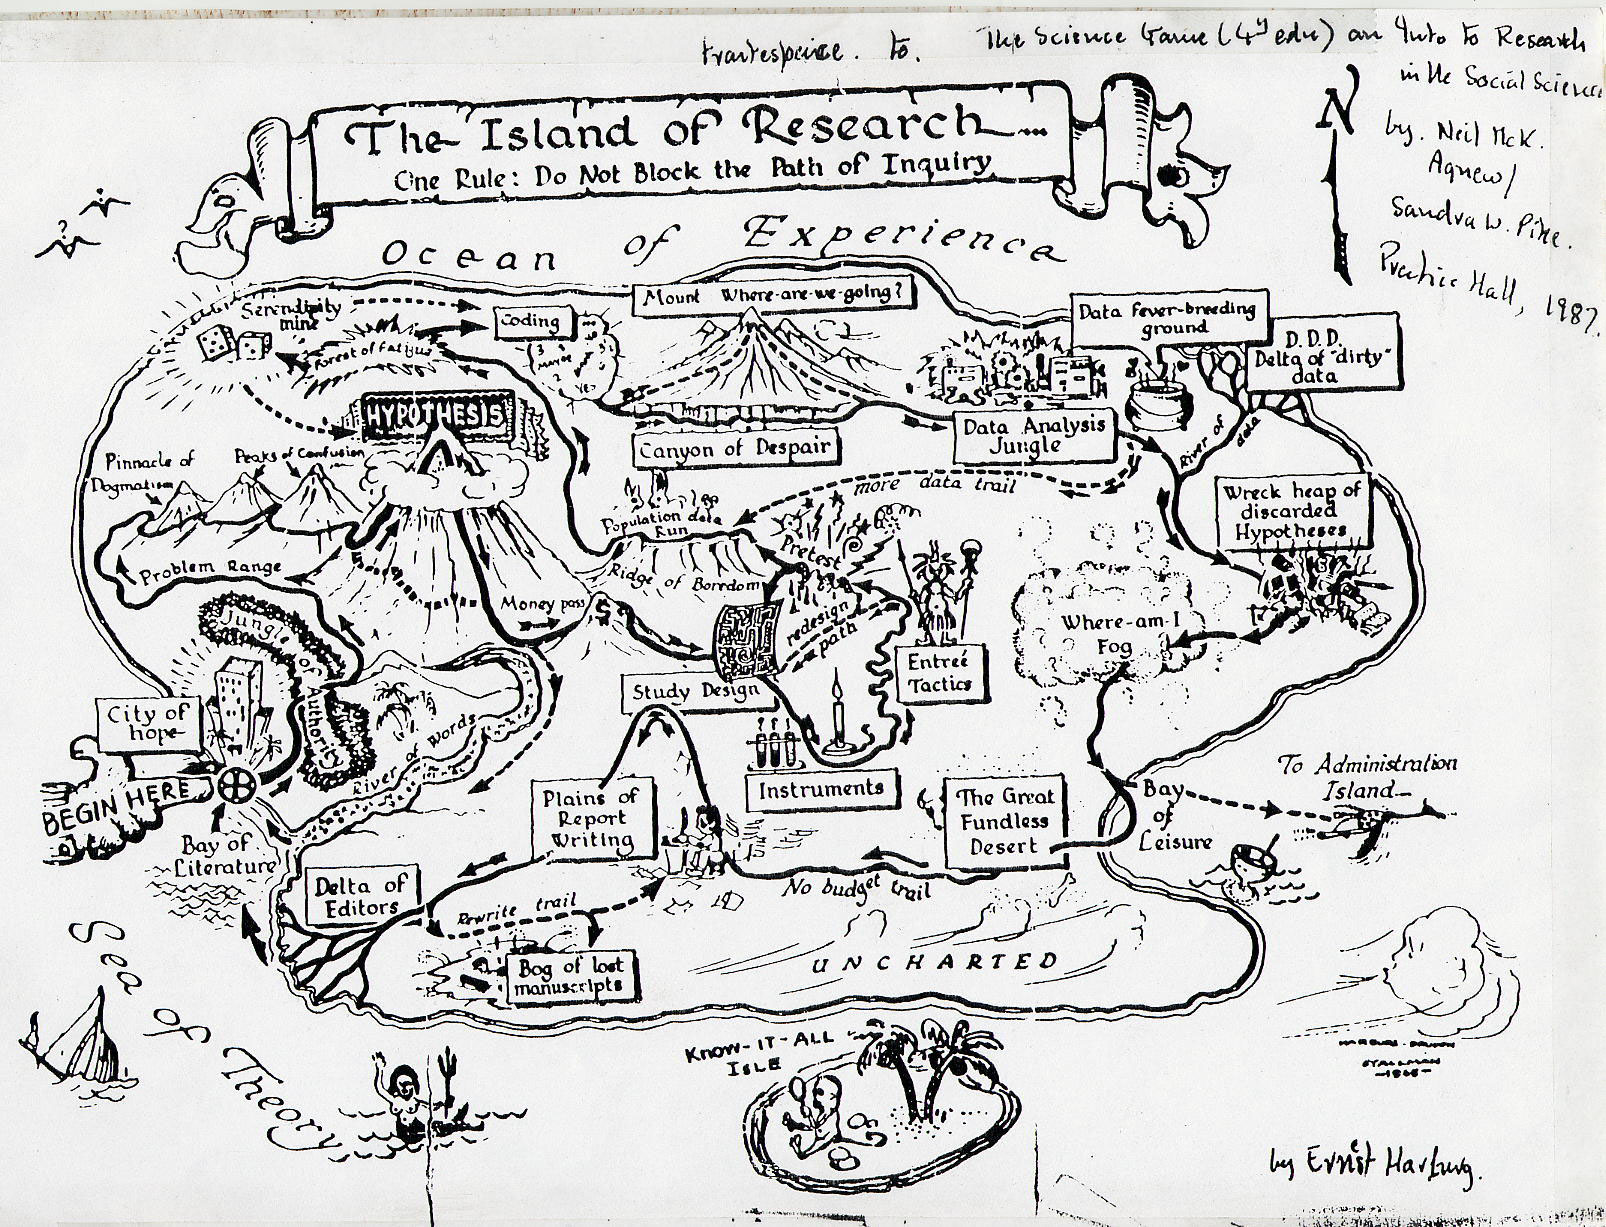 frontespiece. to. The Science Game (4y edn) an Into to Research
in the Social Sciences
by. Neil McK.
Agnew/
Sandra W. Pike.
Prentice Hall, 1987.
N
The Island of Research...
One Rule: Do Not Block the Path of Inquiry
Ocean of Experience
?
Serendipity
mine
Coding
Forest of fatigue
3
maybe
2
YES
Mount Where-are-we-going?
C2
Data fever-breeding
ground
D.D.D.
Delta of "dirty"
data
HYPOTHESIS
Canyon of Despair
Data Analysis
Jungle
River of
data
Pinnacle of
Dogmatism
Peaks of Confusion
more data trail
Wreck heap of
discarded
Hypotheses
Population data
Run
Pretest
Problem Range
Ridge of Borrdom
Money pass
$
redesign
path
Where-am-I
Fog
Jungle of Authority
Entreé
Tactics
Study Design
City of
hope
River of Words
BEGIN HERE
Plains of
Report
Writing
Instruments
The Great
Fundless
Desert
Bay
of
Leisure
To Administration
Island
Bay of
Literature
Delta of
Editors
Rewrite trail
No budget trail
Bog of lost
manuscripts
UNCHARTED
Sea of Theory
KNOW-IT-ALL
ISLE
by Ernest Harburg.